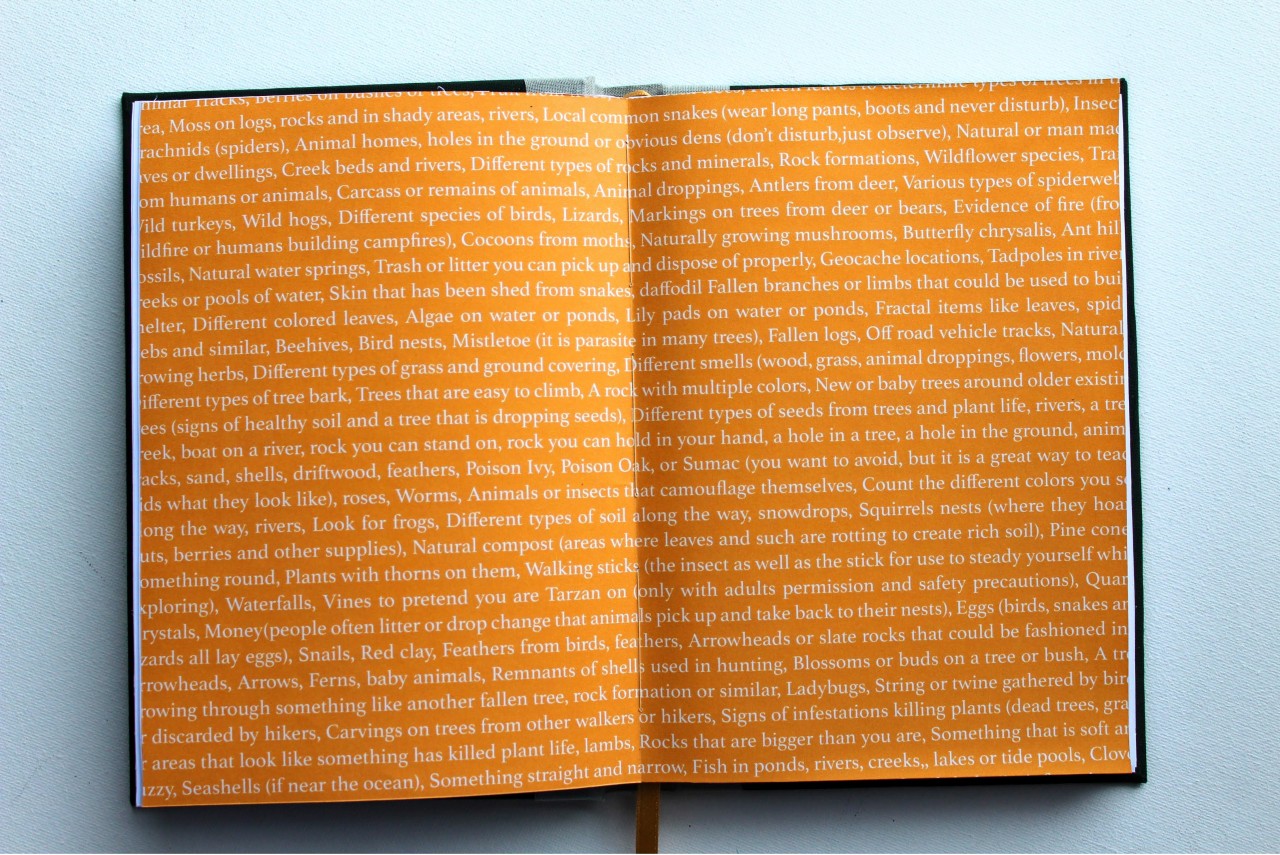 Animal Tracks, Berries on bushes or trees, Fallen leaves to determine types of trees in
rea, Moss on logs, rocks and in shady areas, rivers, Local common snakes (wear long pants, boots and never disturb), Insec
rachnids (spiders), Animal homes, holes in the ground or obvious dens (don't disturb,just observe), Natural or man mad
aves or dwellings, Creek beds and rivers, Different types of rocks and minerals, Rock formations, Wildflower species, Trai
om humans or animals, Carcass or remains of animals, Animal droppings, Antlers from deer, Various types of spiderweb
Wild turkeys, Wild hogs, Different species of birds, Lizards, Markings on trees from deer or bears, Evidence of fire (fro
ildfire or humans building campfires), Cocoons from moths, Naturally growing mushrooms, Butterfly chrysalis, Ant hil
ossils, Natural water springs, Trash or litter you can pick up and dispose of properly, Geocache locations, Tadpoles in river
reeks or pools of water, Skin that has been shed from snakes, daffodil Fallen branches or limbs that could be used to bui
helter, Different colored leaves, Algae on water or ponds, Lily pads on water or ponds, Fractal items like leaves, spid
ebs and similar, Beehives, Bird nests, Mistletoe (it is parasite in many trees), Fallen logs, Off road vehicle tracks, Natural
rowing herbs, Different types of grass and ground covering, Different smells (wood, grass, animal droppings, flowers, mold
ifferent types of tree bark, Trees that are easy to climb, A rock with multiple colors, New or baby trees around older existin
ees (signs of healthy soil and a tree that is dropping seeds), Different types of seeds from trees and plant life, rivers, a tre
reek, boat on a river, rock you can stand on, rock you can hold in your hand, a hole in a tree, a hole in the ground, anim
acks, sand, shells, driftwood, feathers, Poison Ivy, Poison Oak, or Sumac (you want to avoid, but it is a great way to teac
ids what they look like), roses, Worms, Animals or insects that camouflage themselves, Count the different colors you s
long the way, rivers, Look for frogs, Different types of soil along the way, snowdrops, Squirrels nests (where they hoar
uts, berries and other supplies), Natural compost (areas where leaves and such are rotting to create rich soil), Pine cone
omething round, Plants with thorns on them, Walking sticks (the insect as well as the stick for use to steady yourself whi
xploring), Waterfalls, Vines to pretend you are Tarzan on (only with adults permission and safety precautions), Quar
rystals, Money(people often litter or drop change that animals pick up and take back to their nests), Eggs (birds, snakes an
zards all lay eggs), Snails, Red clay, Feathers from birds, feathers, Arrowheads or slate rocks that could be fashioned in
rrowheads, Arrows, Ferns, baby animals, Remnants of shells used in hunting, Blossoms or buds on a tree or bush, A tr
rowing through something like another fallen tree, rock formation or similar, Ladybugs, String or twine gathered by bir
r discarded by hikers, Carvings on trees from other walkers or hikers, Signs of infestations killing plants (dead trees, gra
r areas that look like something has killed plant life, lambs, Rocks that are bigger than you are, Something that is soft an
uzzy, Seashells (if near the ocean), Something straight and narrow, Fish in ponds, rivers, creeks,, lakes or tide pools, Clov